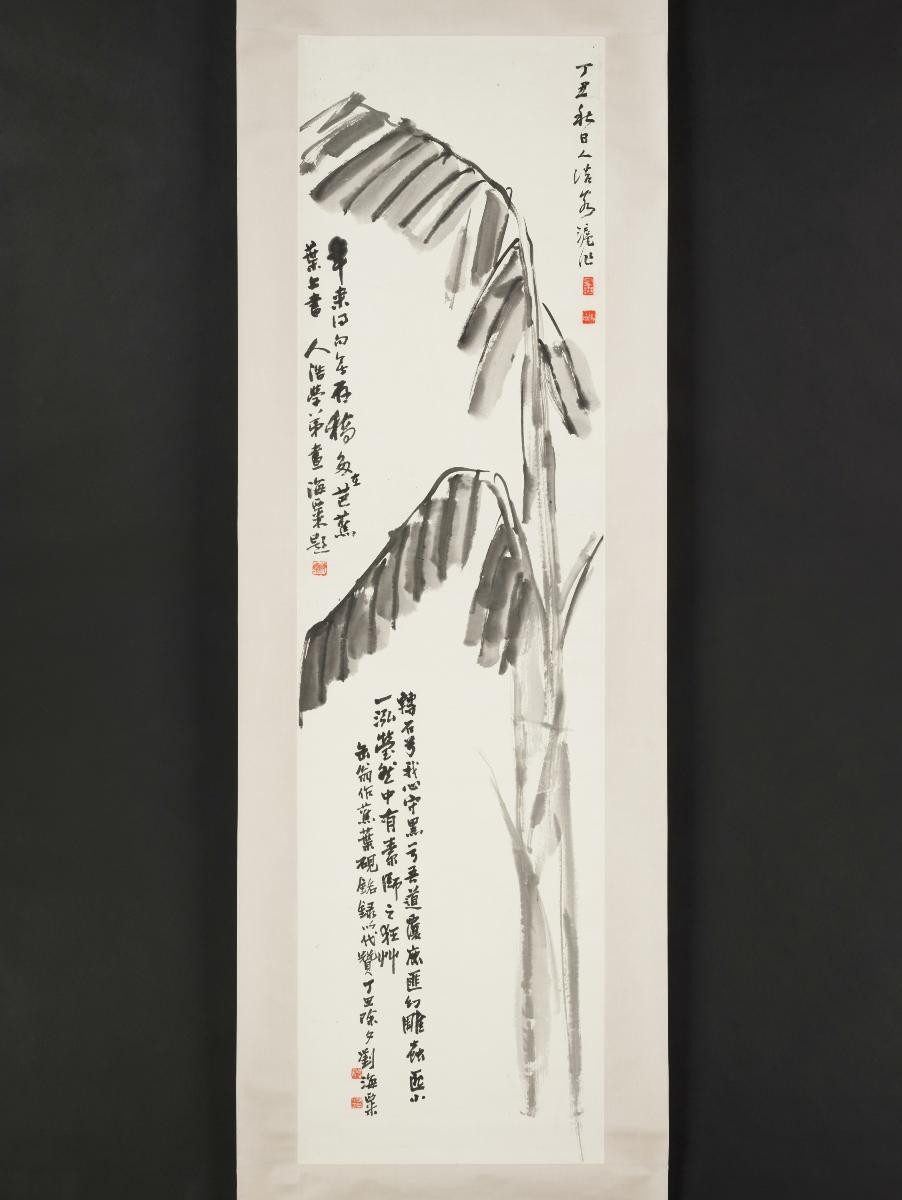 丁丑秋日人浩客滬作
年来得句無存稿多在芭蕉
葉上書 人浩學弟畫海粟題
轉石兮我心守黑兮吾道覆鹿匪幻雕蟲匪小
一泓瑩然中有素師之狂艸
缶翁作蕉葉硯銘録以代贊丁丑除夕劉海粟